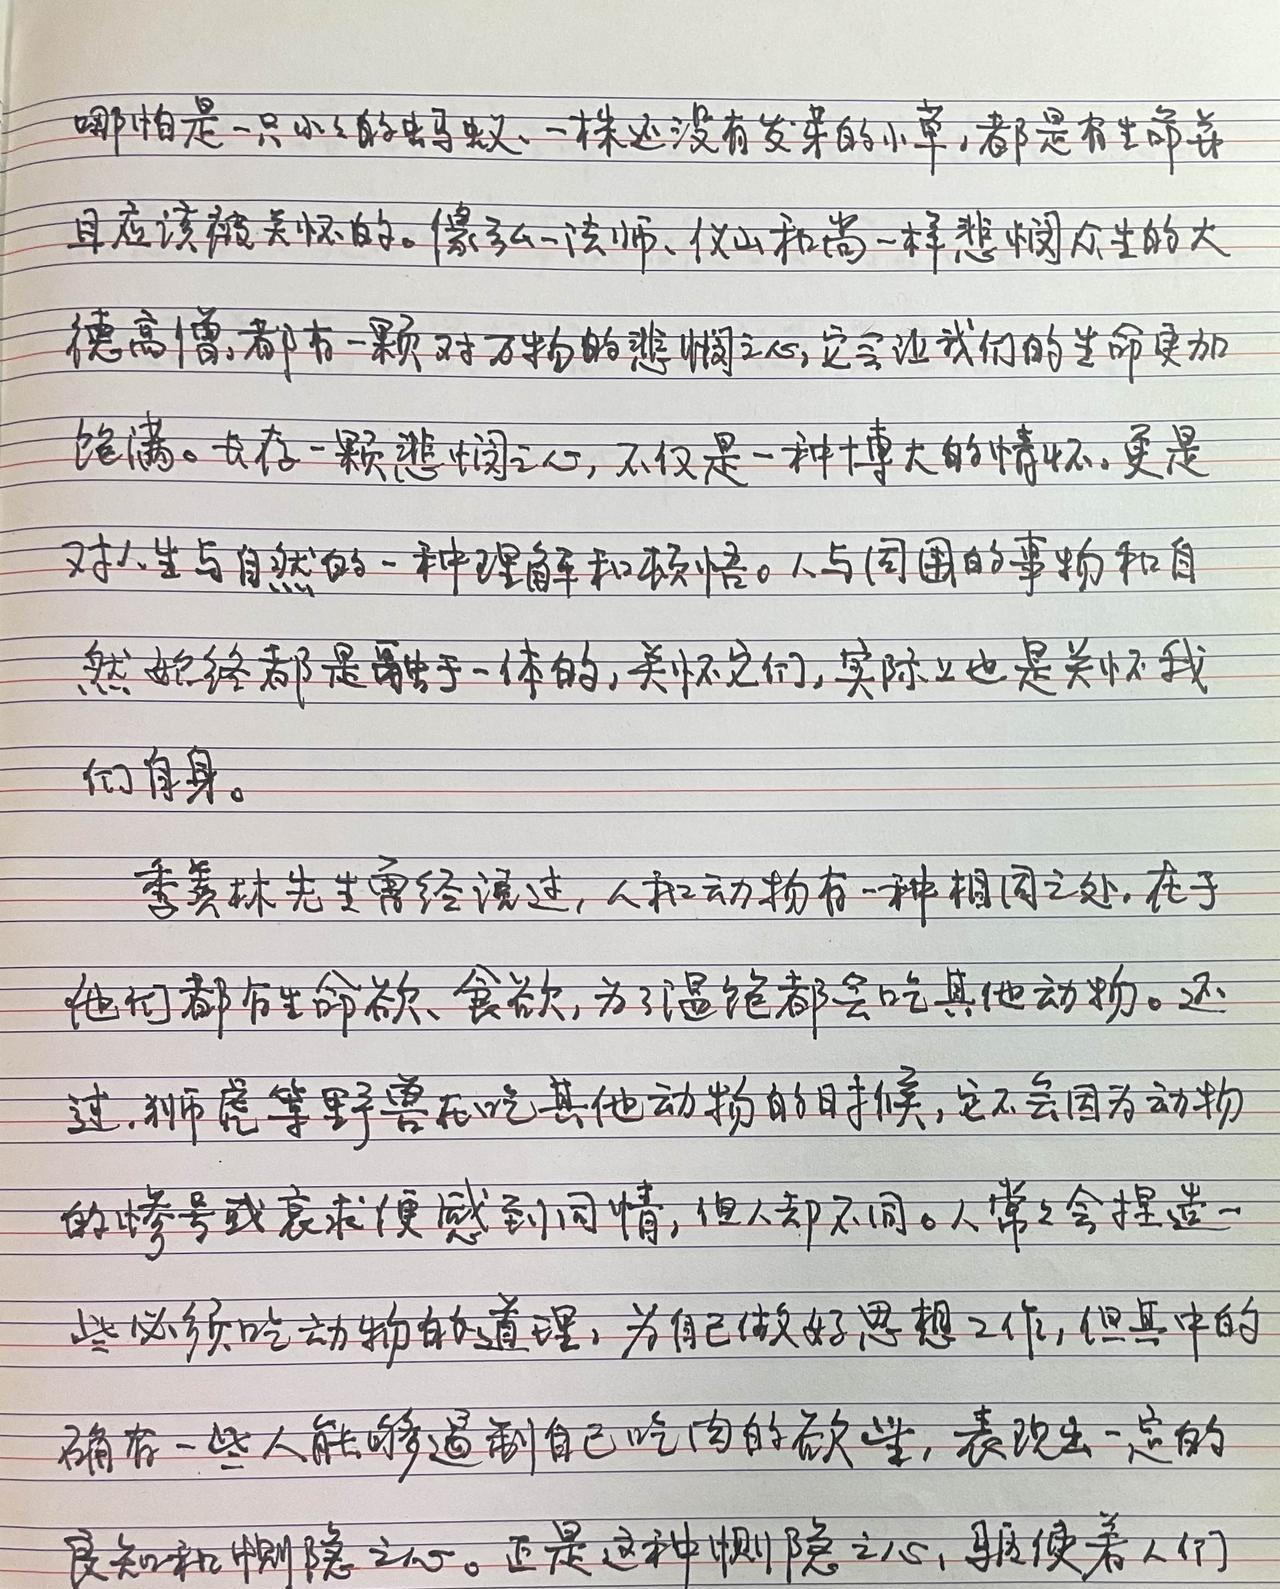 哪怕是一只小小的蚂蚁、一株还没有发芽的小草,都是有生命并
且应该被关怀的。像弘一法师、仪山和尚一样悲悯众生的大
德高僧,都有一颗对万物的悲悯之心,它会让我们的生命更加
饱满。长存一颗悲悯之心,不仅是一种博大的情怀,更是
对人生与自然的一种理解和顿悟。人与周围的事物和自
然始终都是融于一体的,关怀它们,实际上也是关怀我
们自身。
季羡林先生曾经说过,人和动物有一种相同之处,在于
他们都有生命欲、食欲,为了温饱都会吃其他动物。不
过,狮虎等野兽在吃其他动物的时候,它不会因为动物
的惨号或哀求便感到同情,但人却不同。人常常会捏造一
些必须吃动物的道理,为自己做好思想工作,但其中的
确有一些人能够遏制自己吃肉的欲望,表现出一定的
良知和恻隐之心。正是这种恻隐之心,驱使着人们